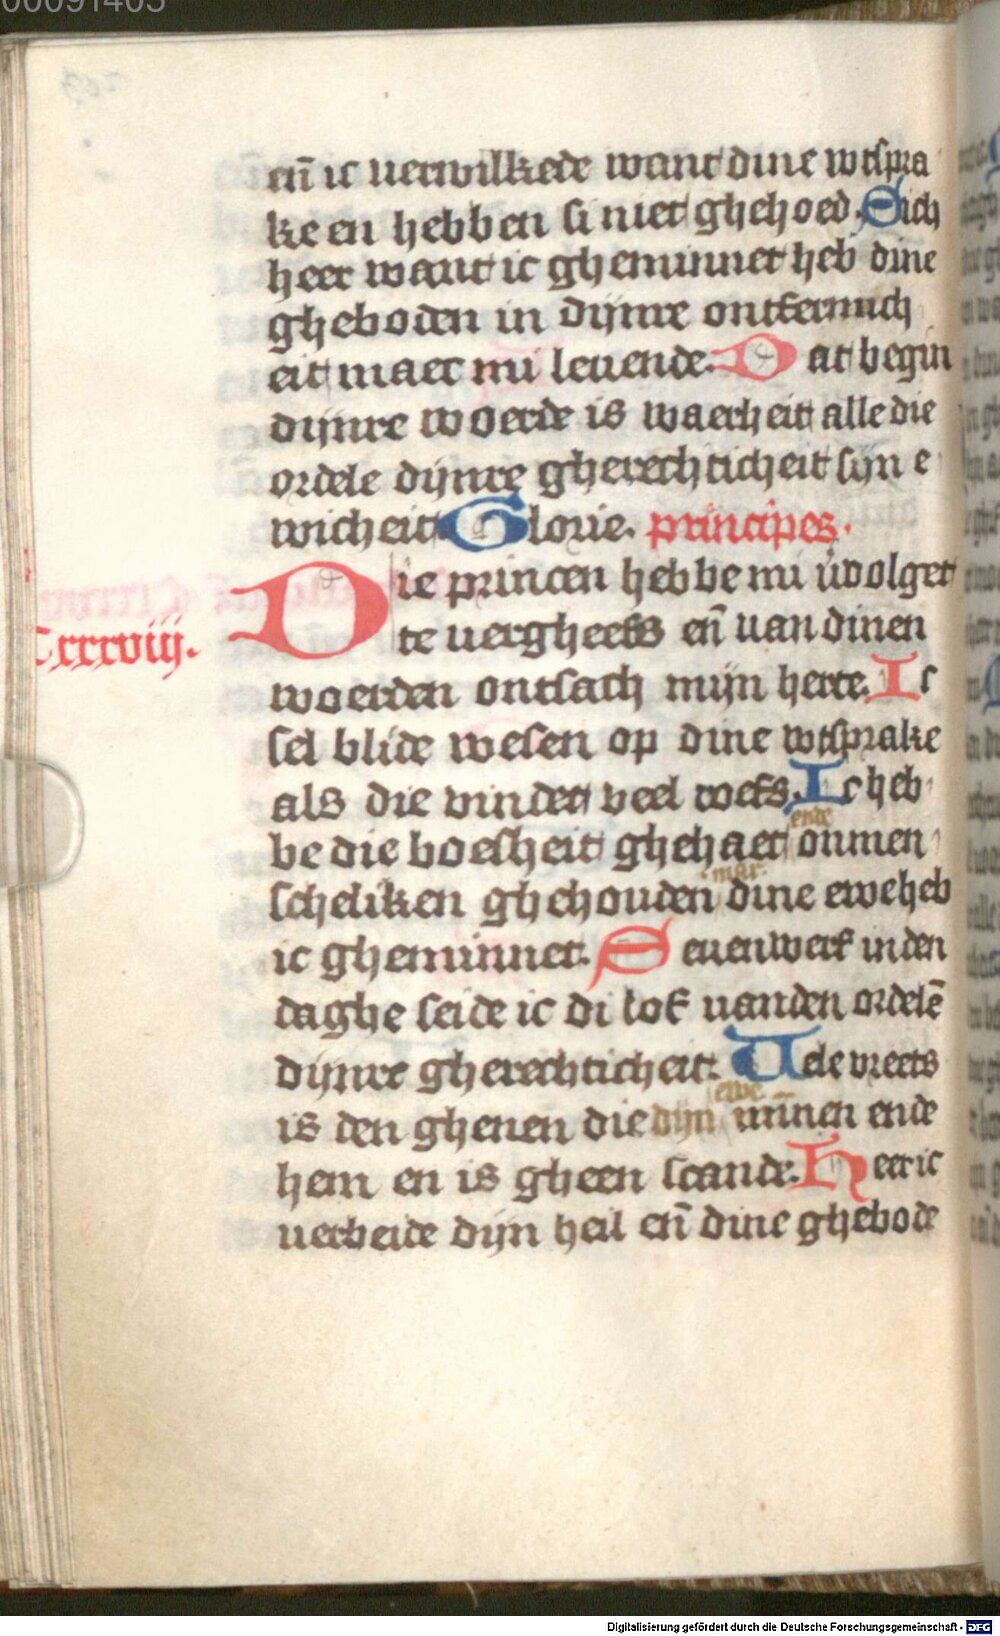 00091405
en̄ ic uerwilkede want dine wtspra
ke en hebben si niet ghehoed. Sich
heer want ic gheminnet heb dine
gheboden in dijnre ontfermich
eit maec mi leuende. Dat begin
dijnre woerde is waerheit alle die
ordele dijnre gherechticheit sijn e
wicheit. Glorie. principes.
Die princen hebbe mi ūuolget
te uergheefs en̄ uan dinen
Cxxxviij.
woerden ontsach mijn herte. Ic
sel blide wesen op dine wtsprake
als die vindet veel roefs. Ic heb
ende
be die boesheit ghehaet onmen
mar
scheliken ghehouden dine ewe heb
ic gheminnet. Seuenwerf in den
daghe seide ic di lof uanden ordelē
dijnre gherechticheit. Uele vreets
ewe
is den ghenen die dijn minnen ende
hem en is gheen scande. Heer ic
uerbeide dijn heil en̄ dine ghebode
Digitalisierung gefördert durch die Deutsche Forschungsgemeinschaft - DFG